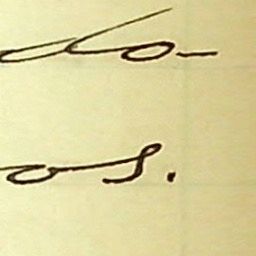 do-
os.